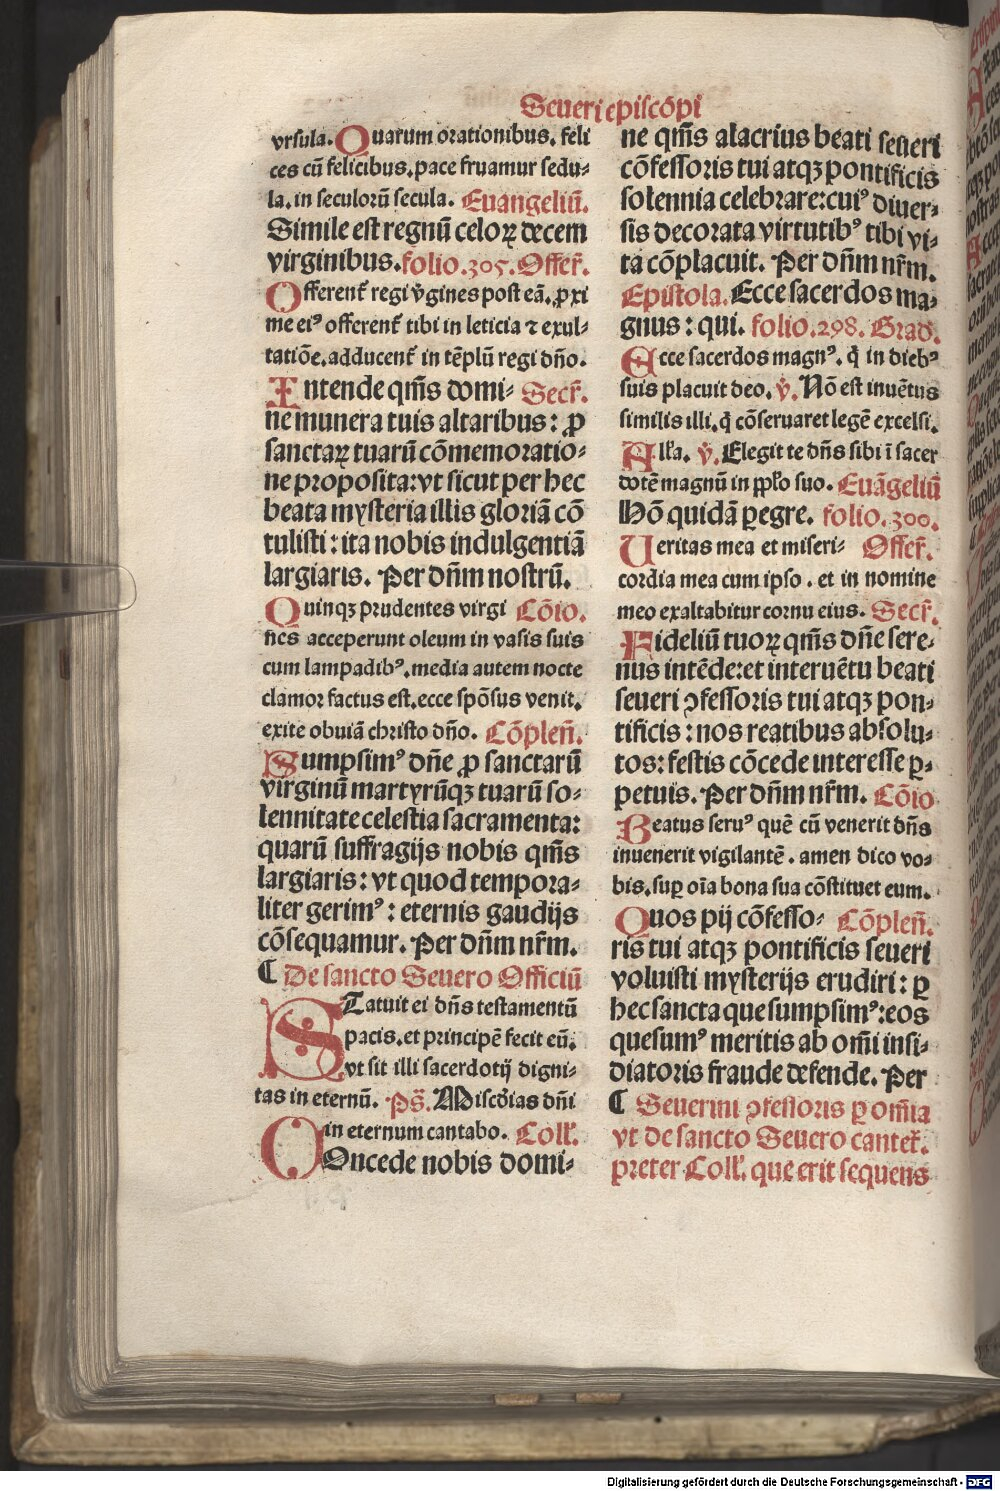 Seueri episcōpi
vrsula. Quarum orationibus. feli
ces cū felicibus. pace fruamur sedu⸗
la. in seculorū secula. Euangeliū.
Simile est regnū celoꝝ decem
virginibus. folio.305. Offer̄.
Offerent̄ regi v̄gines post eā. ꝓxi
me eiꝰ offerent̄ tibi in leticia ⁊ exul⸗
tatiōe. adducent̄ in tēplū regi dn̄o.
Intende qm̄s domi⸗ Secr̄.
ne munera tuis altaribus: ꝓ
sanctaꝝ tuarū cōmemoratio⸗
ne proposita: vt sicut per hec
beata mysteria illis gloriā cō
tulisti: ita nobis indulgentiā
largiaris. Per dn̄m nostrū.
Quinqꝫ prudentes virgi Cōio.
nes acceperunt oleum in vasis suis
cum lampadibꝰ. media autem nocte
clamor factus est. ecce spōsus venit.
exite obuiā christo dn̄o. Cōplen̄.
Sumpsimꝰ dn̄e ꝓ sanctarū
virginū martyrūqꝫ tuarū so⸗
lennitate celestia sacramenta:
quarū suffragijs nobis qm̄s
largiaris: vt quod tempora⸗
liter gerimꝰ: eternis gaudijs
cōsequamur. Per dn̄m nr̄m.
¶ De sancto Seuero Officiū
Statuit ei dn̄s testamentū
pacis. et principē fecit eū.
vt sit illi sacerdotij digni⸗
tas in eternū. Ps̄. Miscd̄ias dn̄i
in eternum cantabo. Coll̄.
Concede nobis domi⸗
ne qm̄s alacrius beati seueri
cōfessoris tui atqꝫ pontificis
solennia celebrare: cuiꝰ diuer⸗
sis decorata virtutibꝰ tibi vi⸗
ta cōplacuit. Per dn̄m nr̄m.
Epistola. Ecce sacerdos ma⸗
gnus: qui. folio.298. Grad.
Ecce sacerdos magnꝰ. q̄ in diebꝰ
suis placuit deo. v̄. Nō est inuētus
similis illi. q̄ cōseruaret legē excelsi.
All̄a. v̄. Elegit te dn̄s sibi ī sacer
dotē magnū in ppl̄o suo. Euāgeliū
Hō quidā ꝑegre. folio.300.
Ueritas mea et miseri⸗ Offer̄.
cordia mea cum ipso. et in nomine
meo exaltabitur cornu eius. Secr̄.
Fideliū tuoꝝ qm̄s dn̄e sere⸗
nus intēde: et interuētu beati
seueri ↄfessoris tui atqꝫ pon⸗
tificis: nos reatibus absolu⸗
tos: festis cōcede interesse ꝑ⸗
petuis. Per dn̄m nr̄m. Cōio
Beatus seruꝰ quē cū venerit dn̄s
inuenerit vigilantē. amen dico vo⸗
bis. suꝑ oīa bona sua cōstituet eum.
Quos pij cōfesso⸗ Cōplen̄.
ris tui atqꝫ pontificis seueri
voluisti mysterijs erudiri: ꝑ
hec sancta que sumpsimꝰ: eos
quesumꝰ meritis ab om̄i insi⸗
diatoris fraude defende. Per
¶ Seuerini ↄfessoris ꝑ om̄ia
vt de sancto Seuero canter̄.
preter Coll̄. que erit sequens
Digitalisierung gefördert durch die Deutsche Forschungsgemeinschaft - DFG